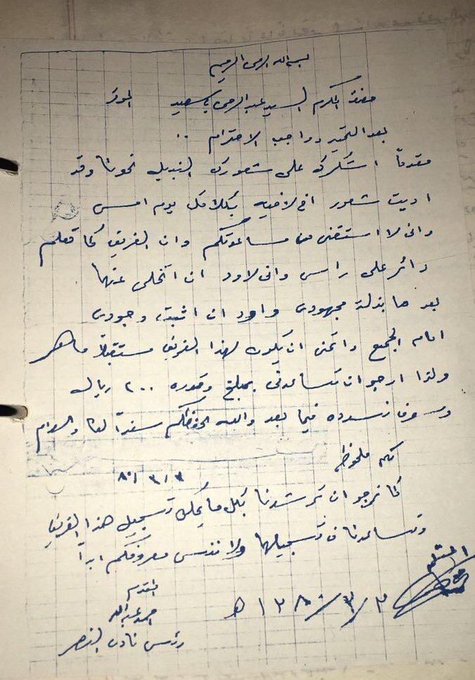 بسم الله الرحمن الرحيم
حضرة المكرم السيد عبدالرحمن بن سعيد الموقر
بعد التحية وواجب الاحترام ..
مقدماً اشكرك على شعورك النبيل نحونا وقد
اديت شعور اخ لاخيه بكلامك يوم امس
وانى لا استغنى عن مساعدتكم وان الفريق كما تعلم
دائر على راسى وانى لا اود ان اتخلى عنها
بعد ما بذلته مجهودى واود ان اثبت وجودى
امام الجميع واتمنى ان يكون لهذا الفريق مستقبلا ماهر
ولذا ارجو ان تساعدنى بمبلغ وقدره ٢٠٠ ريال
وسوف نسدده فيما بعد والله يحفظكم سنداً لنا والسلام
لكم ملحوظه ٨٠/٣/٣
كما نرجو ان ترشدنا بكل ما يمكن تسجيل هذا الفريق
وتساعدنا فى تسجيلها ولا ننسى معروفكم ابداً
المستلم ١٣٨٠/٣/٣ هـ
المقدم
احمد عبدالله
رئيس نادى النصر